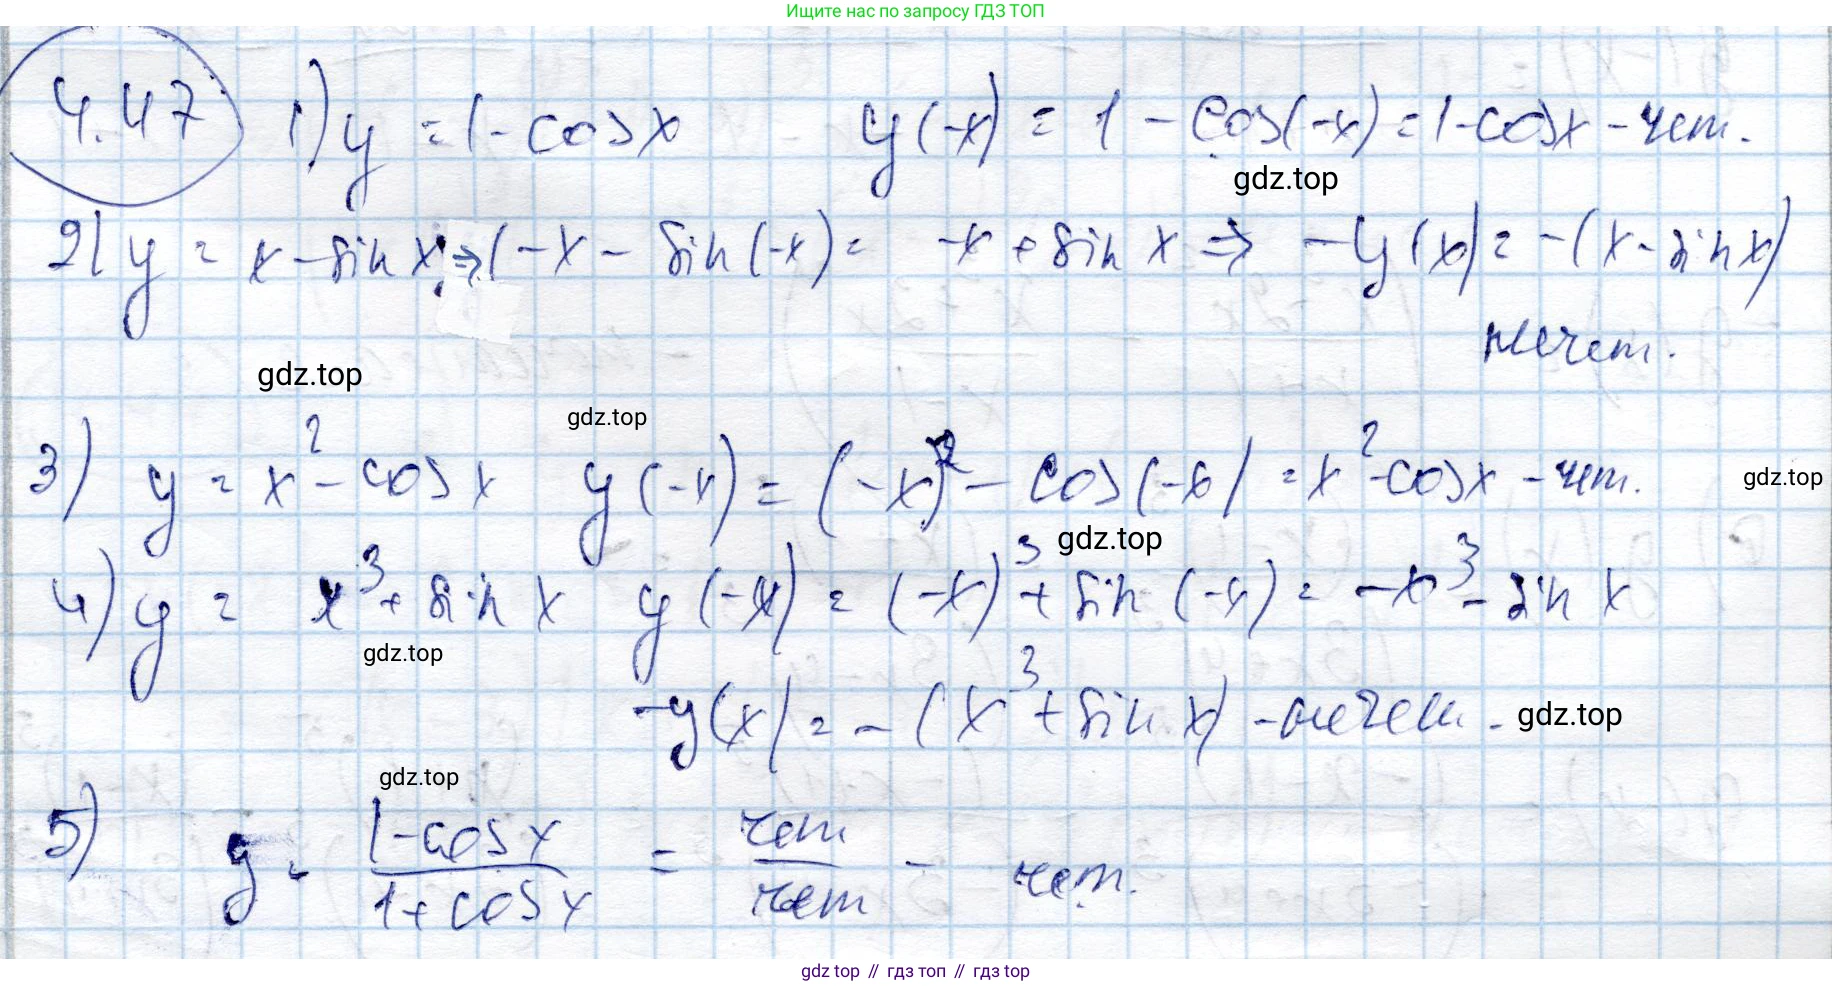 Ищите нас по запросу ГДЗ ТОП
4.47 1) y = 1 - cos x y(-x) = 1 - cos(-x) = 1 - cos x - чет.
gdz.top
2) y = x - sin x; => (-x - sin(-x) = -x + sin x => -y(x) = -(x - sin x)
нечет.
gdz.top
gdz.top
3) y = x² - cos x y(-x) = (-x)² - cos(-x) = x² - cos x - чет.
gdz.top
gdz.top
4) y = x³ + sin x y(-x) = (-x)³ + sin(-x) = -x³ - sin x
gdz.top
-y(x) = -(x³ + sin x) - нечет.
gdz.top
gdz.top
5) y = (1 - cos x)/(1 + cos x) = чет/чет - чет.
gdz top // гдз топ // gdz top